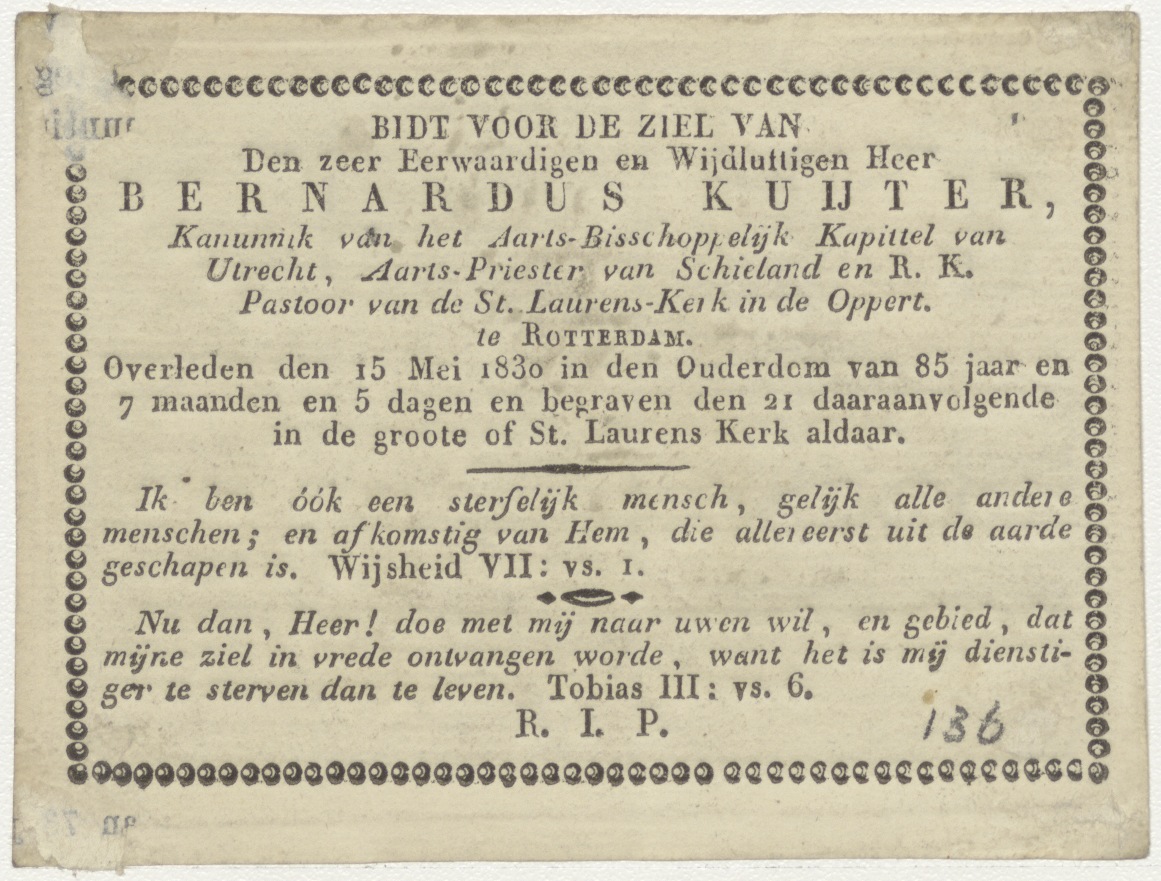 BIDT VOOR DE ZIEL VAN
Den zeer Eerwaardigen en Wijdluftigen Heer
BERNARDUS KUIJTER,
Kanunnik van het Aarts-Bisschoppelijk Kapittel van
Utrecht, Aarts-Priester van Schieland en R. K.
Pastoor van de St. Laurens-Kerk in de Oppert.
te ROTTERDAM.
Overleden den 15 Mei 1830 in den Ouderdom van 85 jaar en
7 maanden en 5 dagen en begraven den 21 daaraanvolgende
in de groote of St. Laurens Kerk aldaar.
Ik ben óók een sterfelijk mensch, gelijk alle andere
menschen; en afkomstig van Hem, die allereerst uit de aarde
geschapen is. Wijsheid VII: vs. 1.
Nu dan, Heer! doe met mij naar uwen wil, en gebied, dat
mijne ziel in vrede ontvangen worde, want het is mij diensti-
ger te sterven dan te leven. Tobias III: vs. 6.
R. I. P.
136